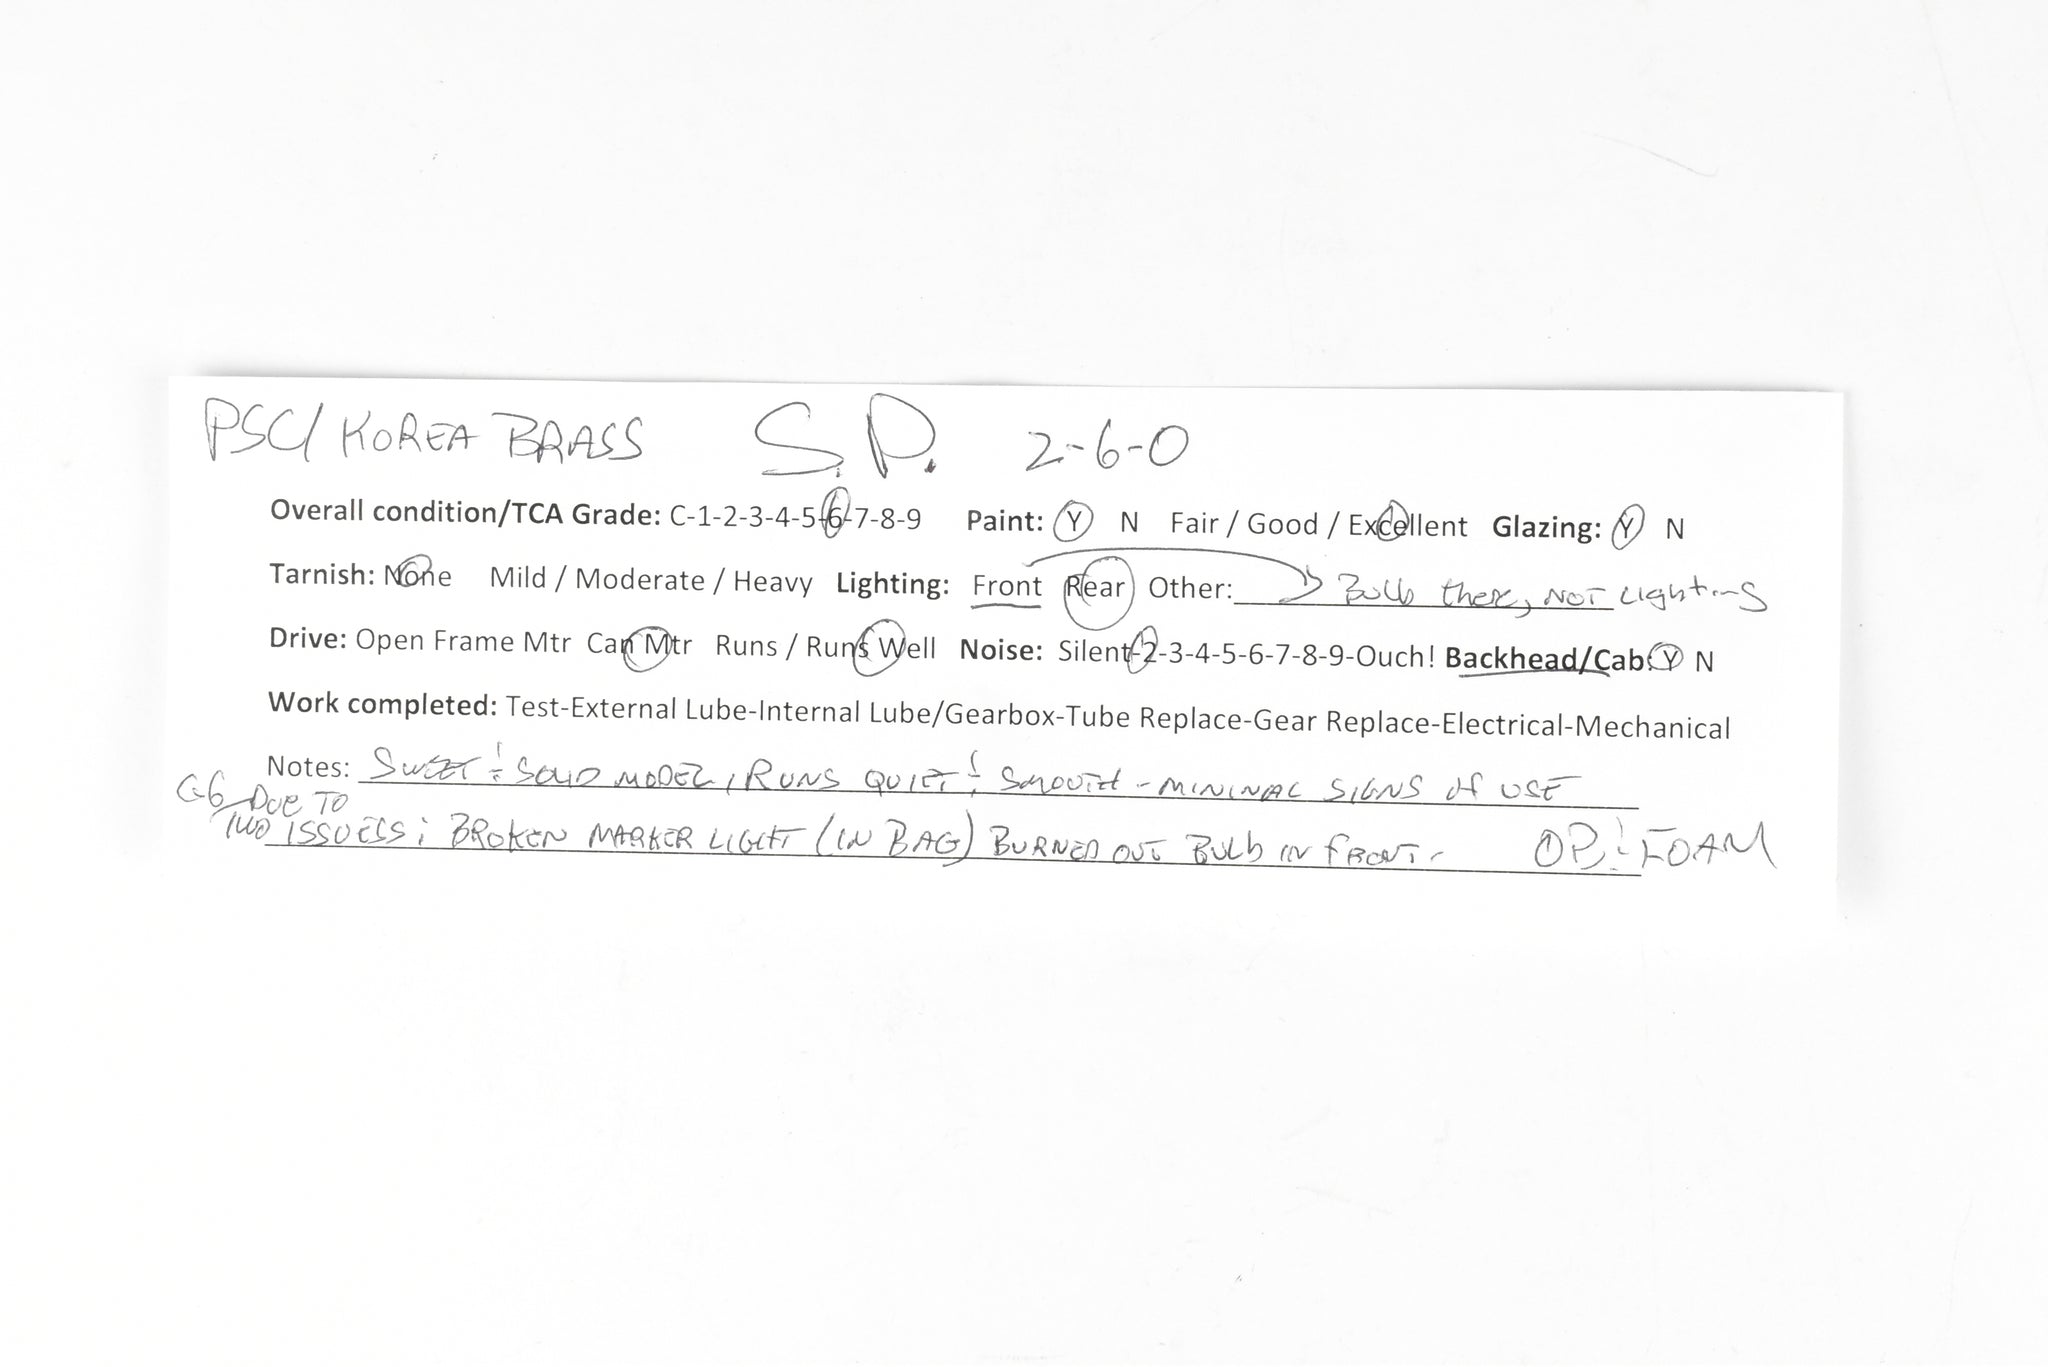 PSC/ KOREA BRASS S.P. 2-6-0
Overall condition/TCA Grade: C-1-2-3-4-5-6-7-8-9 Paint: Y N Fair / Good / Excellent Glazing: Y N
Tarnish: None Mild / Moderate / Heavy Lighting: Front Rear Other: Bulb there, NOT Lighting
Drive: Open Frame Mtr Can Mtr Runs / Runs Well Noise: Silent-2-3-4-5-6-7-8-9-Ouch! Backhead/Cab: Y N
Work completed: Test-External Lube-Internal Lube/Gearbox-Tube Replace-Gear Replace-Electrical-Mechanical
Notes: SWEET & SOLID MODEL, RUNS QUIET & SMOOTH - MINIMAL SIGNS of USE
C-6 DUE TO
TWO ISSUES: BROKEN MARKER LIGHT (IN BAG) BURNED OUT Bulb IN FRONT - OB & FOAM